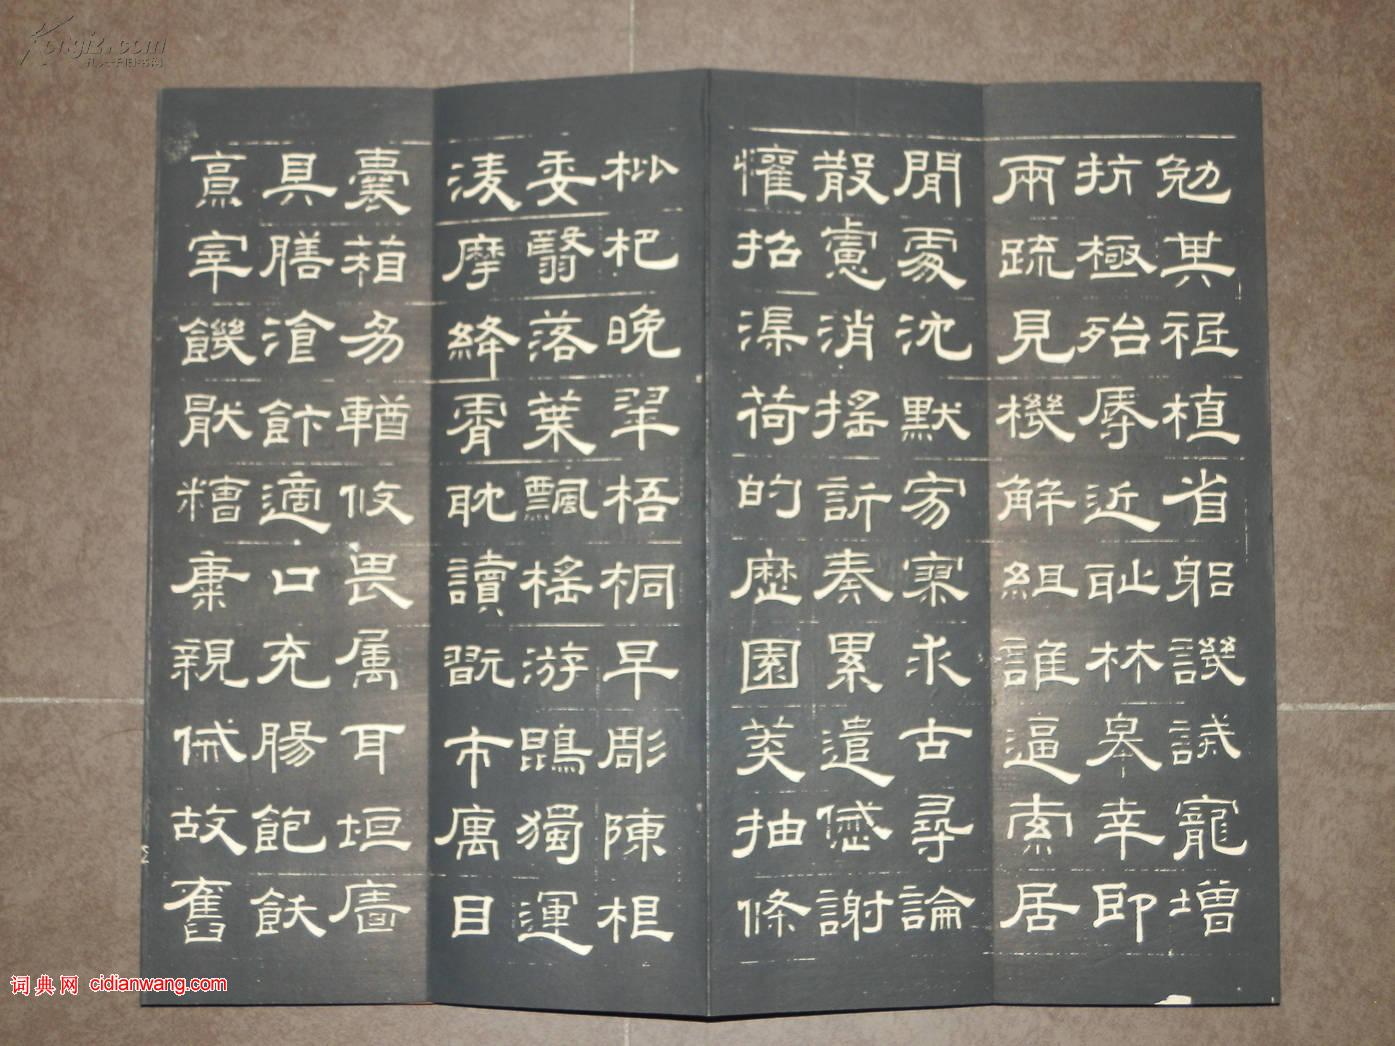 勉其祗植省躬譏誡寵增
抗極殆辱近恥林皋幸即
兩疏見機解組誰逼索居
閒處沈默寂寥求古尋論
散慮消搖訢奏累遣慼謝
懽招渠荷的歷園莽抽條
枇杷晚翠梧桐早彫陳根
委翳落葉飄搖游鵾獨運
淩摩絳霄耽讀翫市寓目
囊箱易輶攸畏属耳垣牆
具膳湌飰適口充腸飽飫
烹宰饑猒糟糠親戚故舊
Kongfz.com
孔夫子旧书网
词典网 cidianwang.com